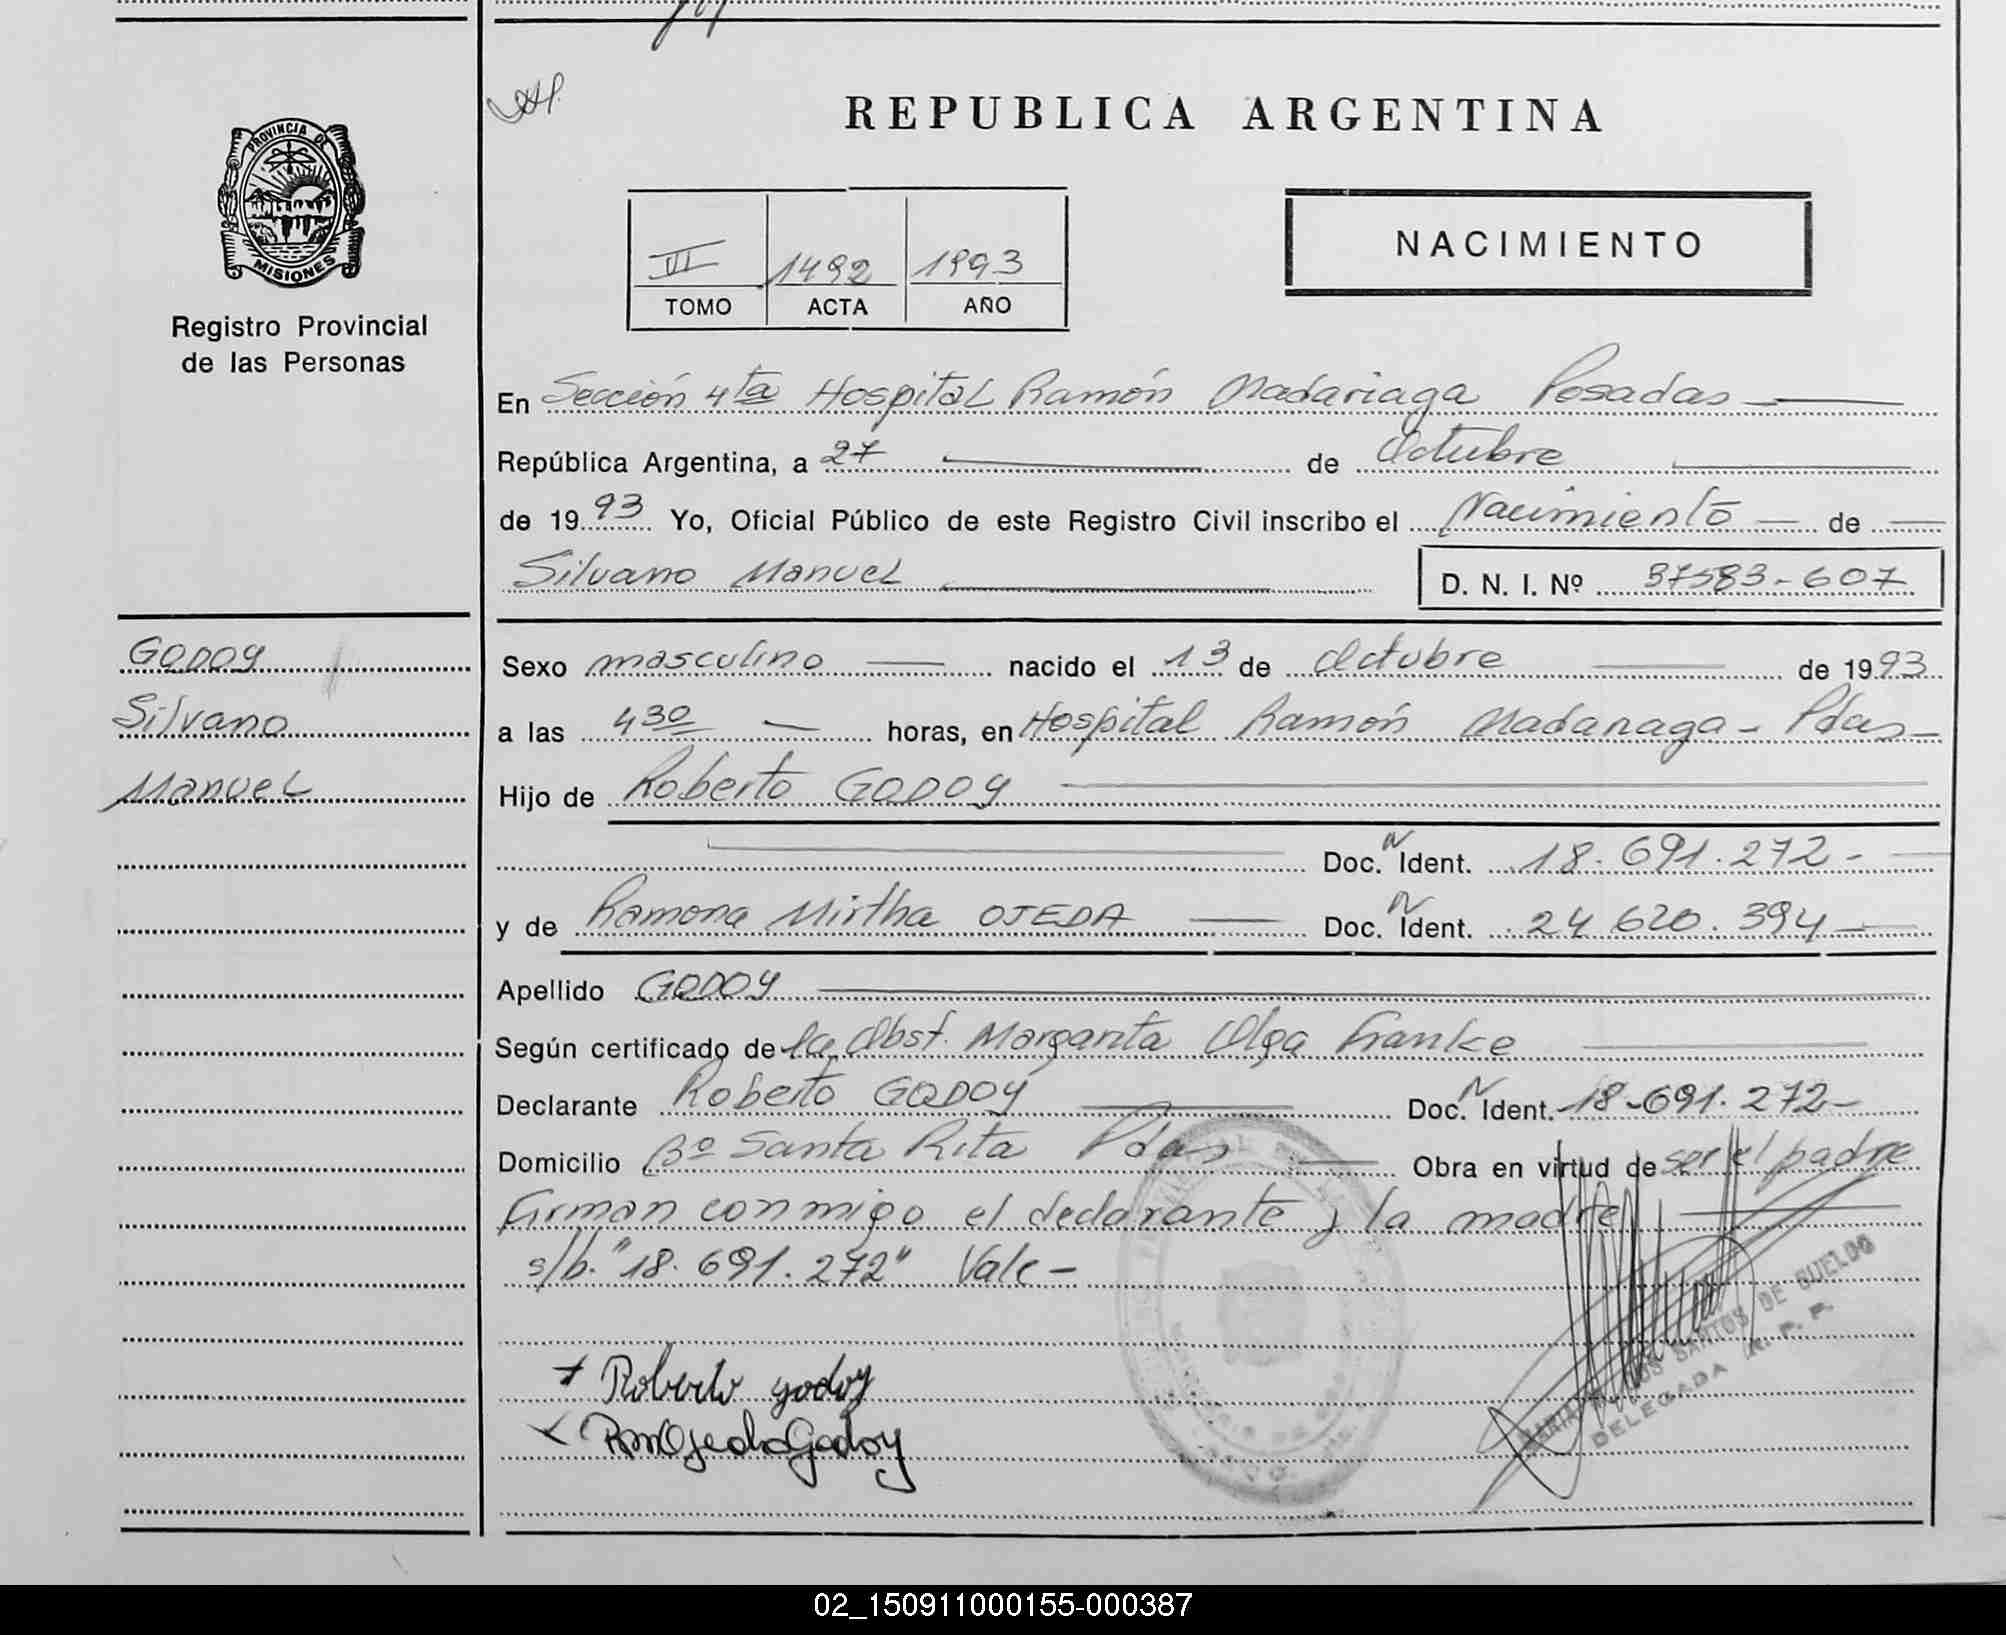 REPUBLICA ARGENTINA
PROVINCIA DE
MISIONES
Registro Provincial
de las Personas
VI 1492 1993
TOMO ACTA AÑO
NACIMIENTO
En Sección 4ta Hospital Ramón Madariaga Posadas
República Argentina, a 27 de Octubre
de 1993 Yo, Oficial Público de este Registro Civil inscribo el Nacimiento de
Silvano Manuel D. N. I. Nº 37583-607
Godoy
Silvano
Manuel
Sexo masculino nacido el 13 de Octubre de 1993
a las 430 horas, en Hospital Ramón Madariaga - Pdas -
Hijo de Roberto GODOY
Doc. N Ident. 18.691.272-
y de Ramona Mirtha OJEDA Doc. N Ident. 24 620.394
Apellido GODOY
Según certificado de la Obst. Margarita Olga Franke
Declarante Roberto GODOY Doc. N Ident. 18-691.272-
Domicilio Bº Santa Rita Pdas Obra en virtud de ser el padre
Firman conmigo el declarante y la madre
s/b. "18.691.272" Vale -
SANTOS DE SUELDO
DELEGADA R. P. P.
Roberto godoy
RmOjedaGodoy
02_150911000155-000387